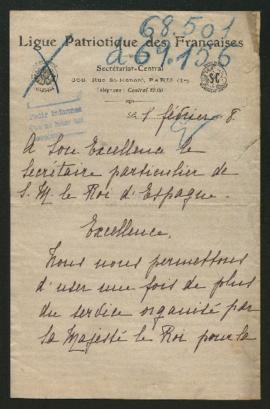 68.501
d. 69.136
Ligue Patriotique des Françaises
Secrétariat-Central
368, Rue St-Honoré, PARIS (1er)
Téléphone : Central
Pedir informes
1 février 8.
A Son Excellence le
Secrétaire particulier de
S. M. le Roi d'Espagne.
Excellence,
Nous nous permettons
d'user une fois de plus
du service organisé par
Sa Majesté le Roi pour la